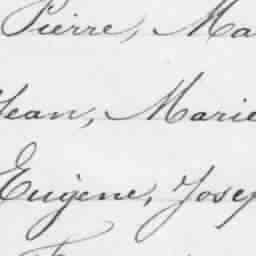 Pierre, Ma
Jean, Marie
Eugène, Josep